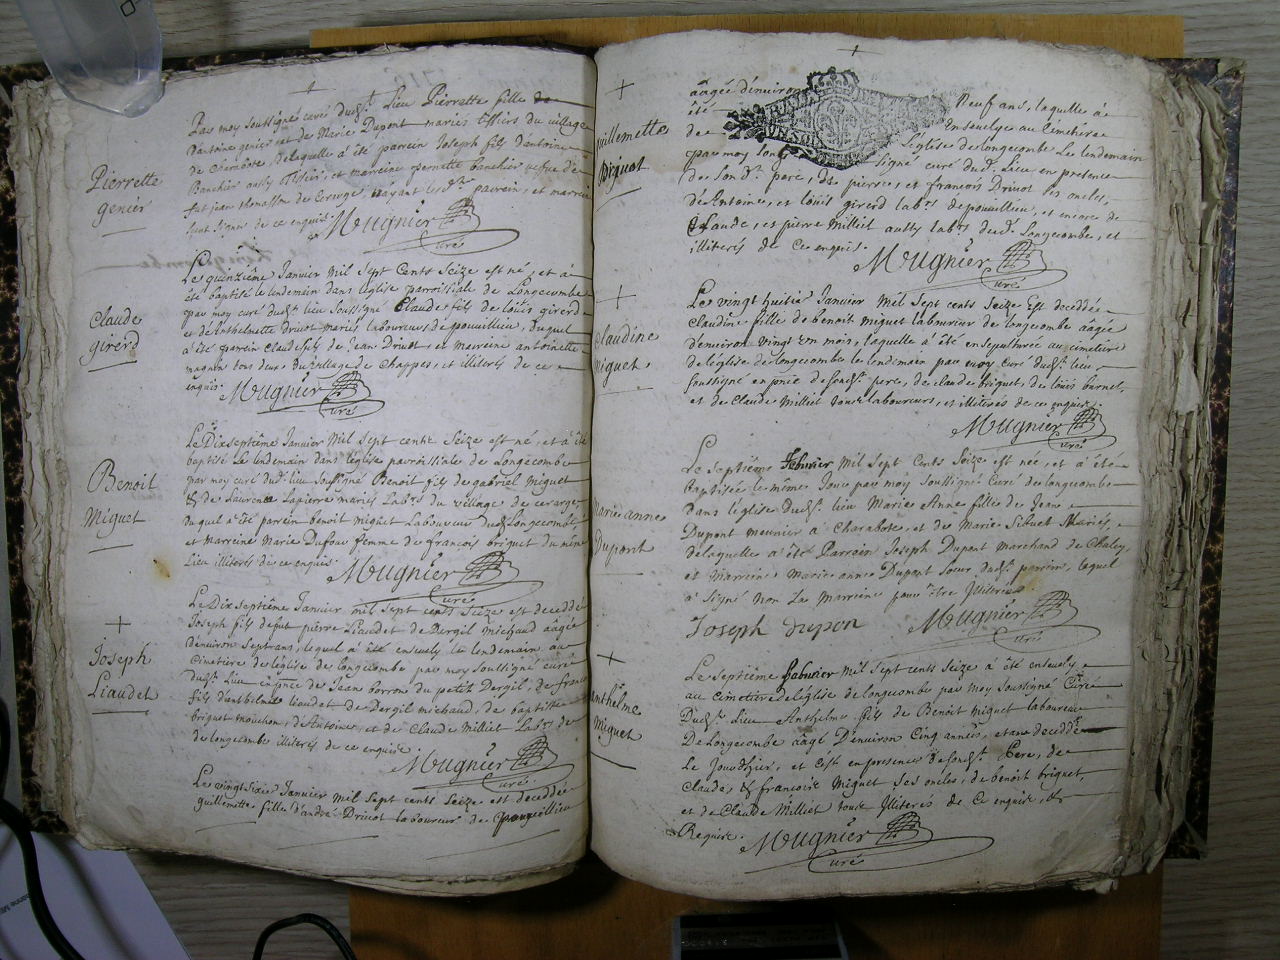 Par moy soussigné curé dud.t Lieu Pierrette fille de
d'antoine genier et de Marie Dupont mariés du village
de laquelle a été parrein Joseph fils d'antoine
Banchier aussy et marreine pernette Banchier vefve de
fut jean thomasson de Cerarge, n'ayant parrein, et marreine
Signer de ce enquis. Mugnier
Curé
Pierrette
genier
Le quinziême Janvier mil Sept Cents Seize est né, et à
été baptisé le lendemain dans l'église parroissiale de Longecombe
par moy curé dud.t lieu Soussigné Claude fils de loüis girerd
et d'Anthelmette Druot mariés laboureurs de pouvillieu, duquel
a été parrein Claude fils de Jean Druot, et marreine antoinette
magnin tous deux du village de Chappes, et illiterés de ce
enquis. Mugnier
Curé
Claude
girerd
Le Dixseptiême Janvier mil Sept cents Seize est né, et à été
baptisé Le lendemain dans l'église parroissiale de Longecombe
par moy curé dud.t lieu Soussigné Benoit fils de gabriel Miguet
& de Laurence Lapierre mariés Lab.rs du village de cerarge
duquel a été parrein benoit miguet Laboureur dud.t Longecombe
et marreine Marie Dufour femme de françois briguet du même
Lieu illiterés de ce enquis. Mugnier
Curé
Benoit
Miguet
Le Dixseptiême Janvier mil Sept cents Seize est decedé
Joseph fils de fut pierre Liaudet de Dergil michaud aâgé
d'environ Sept ans, lequel a été ensevely le lendemain au
Cimetiere de l'église de longecombe par moy Soussigné curé
dud.t Lieu en p'nce de Jean borron du petit Dergil, de franc.
fils d'anthelme liaudet de Dergil michaud, de baptiste
briguet mouchon, d'Antoine, et de Claude Milliet Lab.rs de
de longecombe illiterés de ce enquis.
Mugnier
Curé
Joseph
Liaudet
Le vingt Sixe Janvier Mil Sept cents Seize est decedée
guillemette fille d'andré Druot laboureur de pouvillieu
aâgée d'environ Neuf ans, laquelle à
été Ensevelye au Cimetiere
de l'église de longecombe Le lendemain
par moy Sous signé curé dud.t Lieu en presence
de Son d.t pere, de pierre, et francois Druot Ses oncles,
d'Antoine, et loüis girerd lab.rs de pouvillieu, et encore de
Claude, et pierre Milliet aussy lab.rs dud.t Longecombe, et
illiterés de ce enquis. Mugnier
Curé
uillemette
Le vingt huitiê Janvier Mil Sept cents Seize Est decedée
Claudine fille de benoit miguet laboureur de longecombe aâgée
d'environ vingt un mois, laquelle a été ensepulturée au cimetiere
de l'église de longecombe le lendemain par moy curé dud.t lieu
soussigné en p'nce de son d.t pere, de claude briguet, de loüis burnet,
et de Claude Milliet tous laboureurs, et illiterés de ce enquis.
Mugnier
Curé
laudine
iguet
Le septiême febvrier Mil Sept Cents Seize est née, et à été
baptisée le même Jour par moy Soussigné Curé de longecombe
dans l'église dud.t lieu Marie Anne fille de Jean
Dupont meunier a Charabote, et de Marie Sibuet Mariés,
de laquelle a été Parrein Joseph Dupont marchand de Chaley,
et Marreine Marie anne Dupont Soeur dud.t parrein, lequel
a Signé Non La Marreine pour être Illiterée
Joseph dupon Mugnier
Curé
arie anne
Dupont
Le Septiême febvrier Mil Sept cents Seize à été ensevely
au cimettiere de l'église de longecombe par moy Soustigné Curé
Dud.t Lieu Anthelme fils de Benoit Miguet laboureur
De longecombe âagé D'environ Cinq années, etant decedé
Le Jour d'hier, et C'est en presence de son d.t Pere, de
Claude, & francois Miguet Ses oncles, de benoit briguet,
et de Claude Milliet tous Illiterés de Ce enquis, &
Requis. Mugnier
Curé
nthelme
Miguet